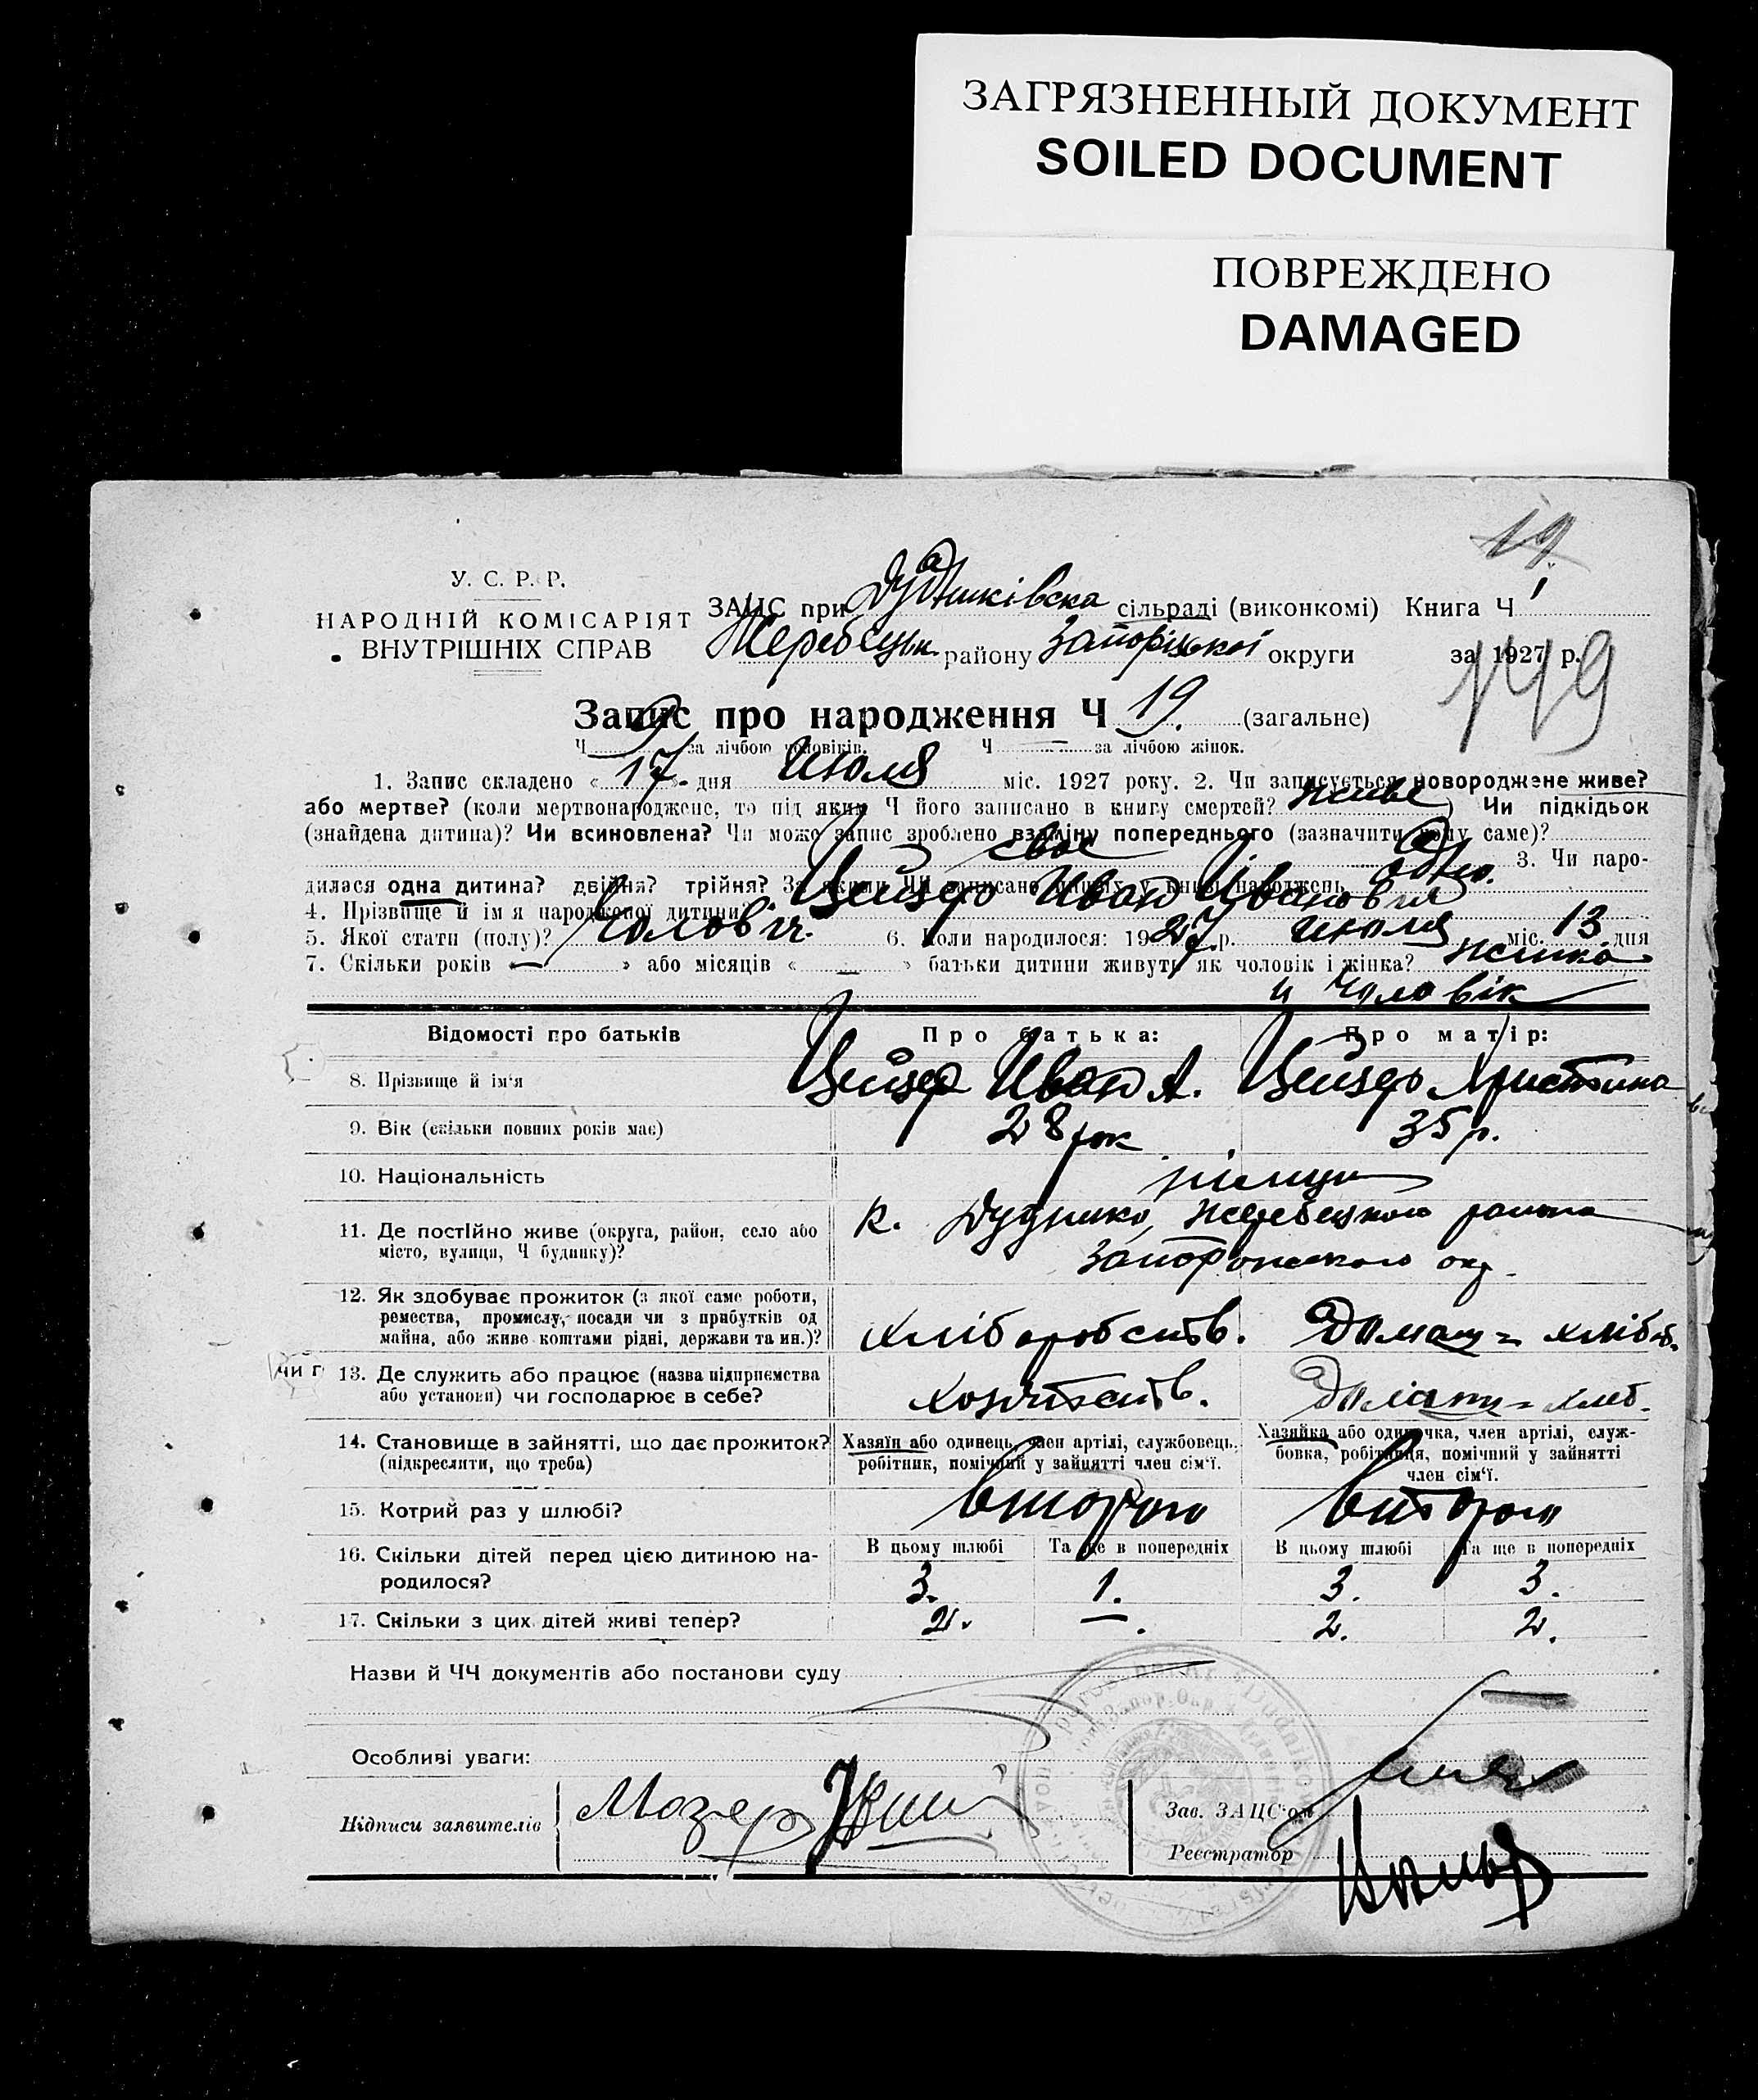 ЗАГРЯЗНЕННЫЙ ДОКУМЕНТ
SOILED DOCUMENT
ПОВРЕЖДЕНО
DAMAGED
19
У. С. Р. Р.
НАРОДНІЙ КОМІСАРІЯТ
ВНУТРІШНІХ СПРАВ
ЗАЦС при Дудниківска сільраді (виконкомі) Книга Ч 1
Жеребецьк. району Запоріzької округи за 1927 р.
149
Запис про народження Ч 19. (загальне)
Ч 9 за лічбою чоловіків. Ч — за лічбою жінок.
1. Запис складено « 17 » дня Июля міс. 1927 року. 2. Чи записується новороджене живе?
або мертве? (коли мертвонароджене, то під яким Ч його записано в книгу смертей? живе) Чи підкідьок
(знайдена дитина)? Чи всиновлена? Чи може запис зроблено взаміну попереднього (зазначити чому саме)?
своє 3. Чи наро-
дилася одна дитина? двійня? трійня? За якими ЧЧ записано инших у книзі народжень одно.
4. Прізвище й ім'я народженої дитини Цейзер Иван Иванович
5. Якої стати (полу)? Чоловіч. 6. Коли народилося: 1927 р. Июля міс. 13 дня
7. Скільки років « — » або місяців « — » батьки дитини живуть як чоловік і жінка? жинка
и чоловік
Відомості про батьків Про батька: Про матір:
8. Прізвище й ім'я Цейзер Иван А. Цейзер Христина
9. Вік (скільки повних років має) 28 рок 35 р.
10. Національність німци
11. Де постійно живе (округа, район, село або
місто, вулиця, Ч будинку)?
к. Дуднико, Жеребецкого района
Запорожского окр.
12. Як здобуває прожиток (з якої саме роботи,
ремества, промислу, посади чи з прибутків од
майна, або живе коштами рідні, держави та ин.)?
хліборобств. Домаш= хлібоб.
чи г
13. Де служить або працює (назва підприємства
або установи) чи господарює в себе?
хозяйств. Домаш= хлеб.
14. Становище в зайнятті, що дає прожиток?
(підкреслити, що треба)
Хазяїн або одинець, член артілі, службовець,
робітник, помічний у зайнятті член сім'ї.
Хазяйка або одиночка, член артілі, служ-
бовка, робітниця, помічний у зайнятті
член сім'ї.
15. Котрий раз у шлюбі? Второго Второго
16. Скільки дітей перед цією дитиною на-
родилося?
В цьому шлюбі Та ще в попередніх В цьому шлюбі Та ще в попередніх
3. 1. 3. 3.
17. Скільки з цих дітей живі тепер? 2. —. 2. 2.
Назви й ЧЧ документів або постанови суду
Особливі уваги:
Підписи заявителів Мозер
Зав. ЗАЦС'ом
Реєстратор